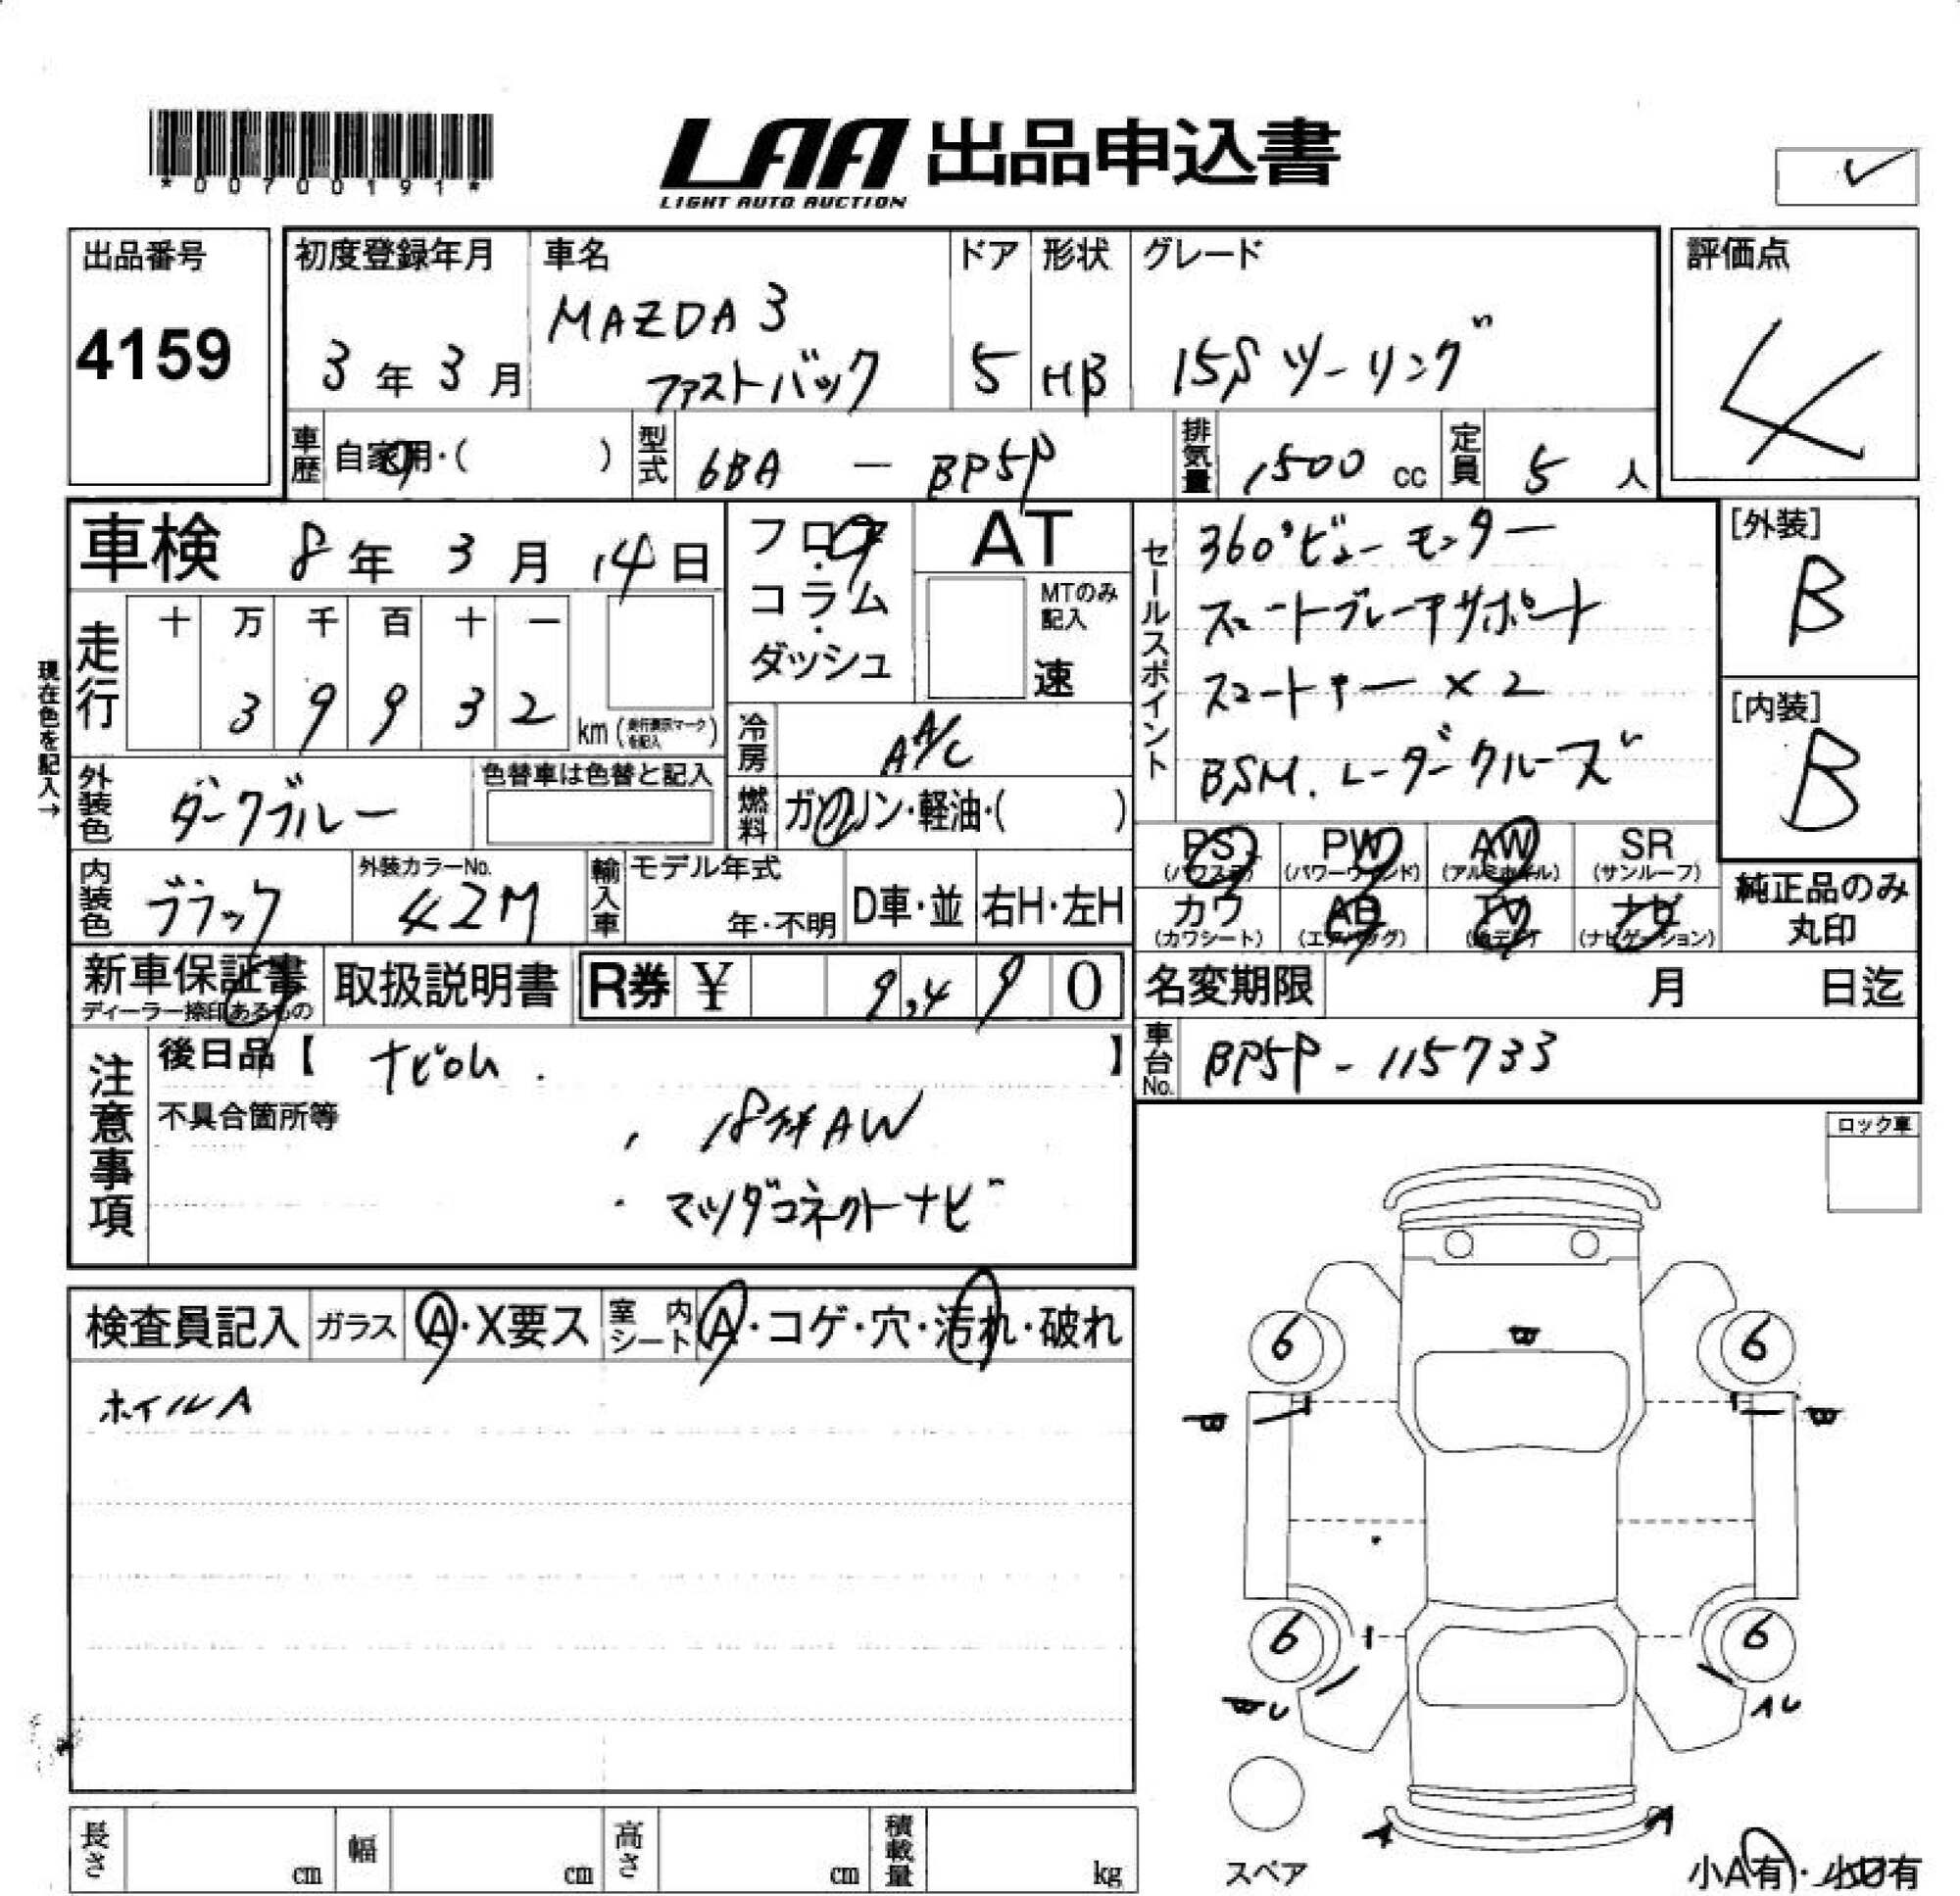 *D0700191*
LAA 出品申込書
LIGHT AUTO AUCTION
出品番号
4159
初度登録年月
3年3月
車名
MAZDA3
ファストバック
ドア
5
形状
HB
グレード
15S ツーリング
評価点
4
車歴 自家用・( )
型式 6BA - BP5P
排気量 1500 cc
定員 5 人
車検 8年 3月 14日
現在色を記入→
走行 十 万 千 百 十 一
3 9 9 3 2 km (走行表示マークを記入)
フロア・コラム・ダッシュ
AT
MTのみ記入
速
冷房 AAC
燃料 ガソリン・軽油・( )
セールスポイント
360°ビューモニター
スマートブレーキサポート
スマートキー×2
BSM. レーダークルーズ
[外装]
B
[内装]
B
外装色 ダークブルー
色替車は色替と記入
内装色 ブラック
外装カラーNo.
42M
輸入車 モデル年式
年・不明
D車・並 右H・左H
PS (パワステ)
PW (パワーウィンド)
AW (アルミホイル)
SR (サンルーフ)
カワ (カワシート)
AB (エアバッグ)
TV (地デジ)
ナビ (ナビゲーション)
純正品のみ
丸印
新車保証書
ディーラー捺印あるもの
取扱説明書
R券 ¥ 9,490
名変期限 月 日迄
車台No. BP5P-115733
注意事項
後日品【 ナビROM. 】
不具合箇所等
・18吋AW
・マツダコネクトナビ
ロック車
検査員記入 ガラス A・X要ス 室内シート A・コゲ・穴・汚れ・破れ
ホイルA
B
6 6
B B
6 6
BU AU
A A
スペア
小A有・小U有
長さ cm
幅 cm
高さ cm
積載量 kg